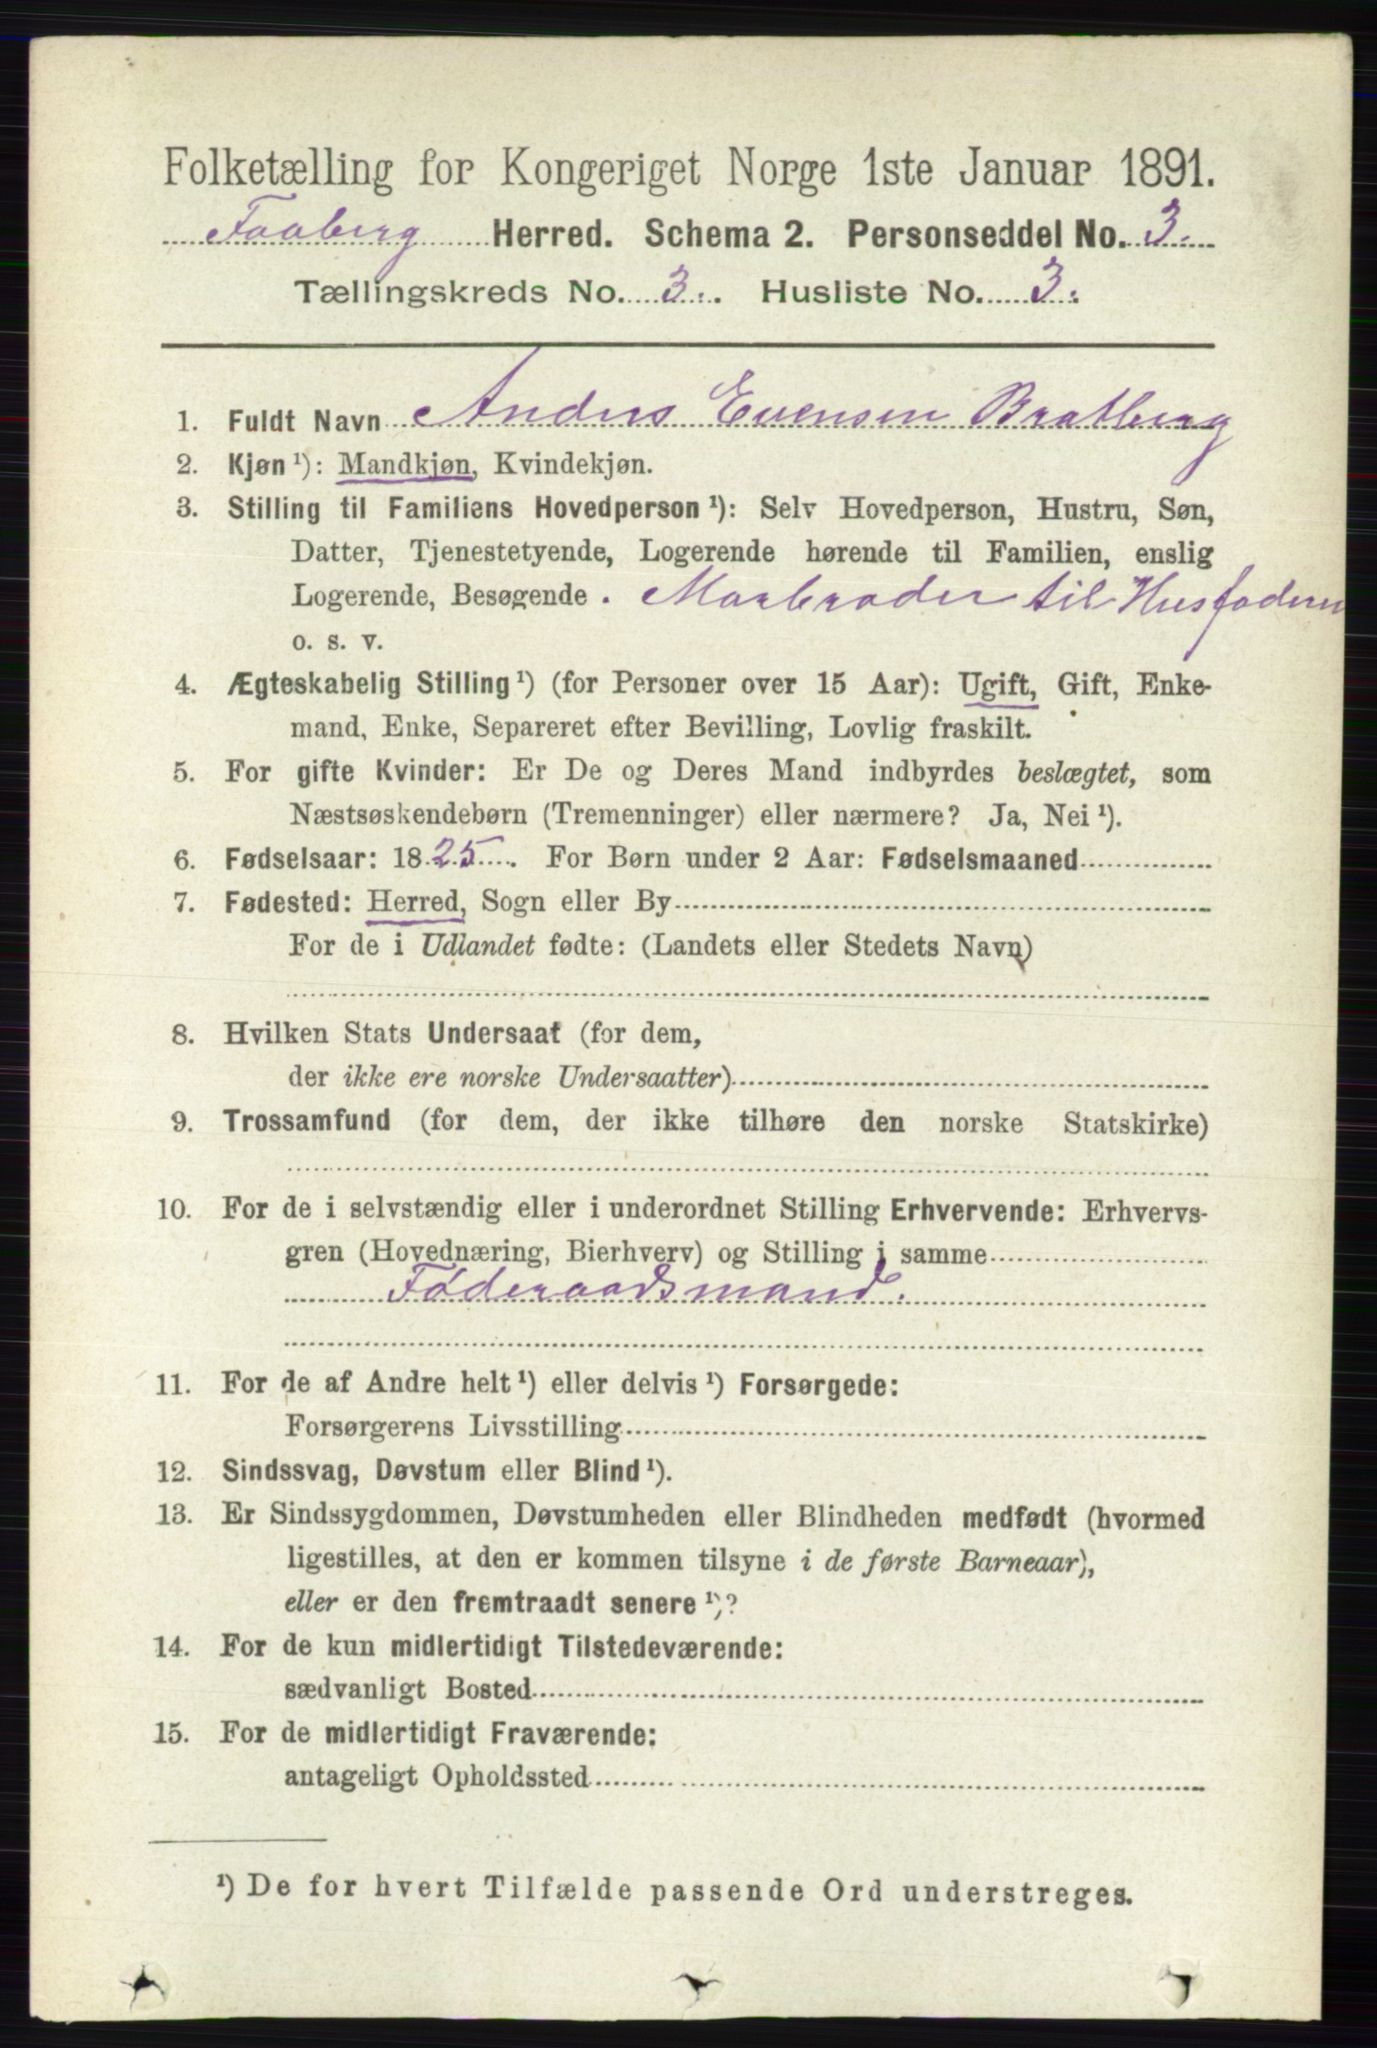 Folketælling for Kongeriget Norge 1ste Januar 1891.
Faaberg Herred. Schema 2. Personseddel No. 3.
Tællingskreds No. 3. Husliste No. 3.
1. Fuldt Navn Anders Evensen Bratberg
2. Kjøn ¹): Mandkjøn, Kvindekjøn.
3. Stilling til Familiens Hovedperson ¹): Selv Hovedperson, Hustru, Søn,
Datter, Tjenestetyende, Logerende hørende til Familien, enslig
Logerende, Besøgende . Morbroder til Husfaderen
o. s. v.
4. Ægteskabelig Stilling ¹) (for Personer over 15 Aar): Ugift, Gift, Enke-
mand, Enke, Separeret efter Bevilling, Lovlig fraskilt.
5. For gifte Kvinder: Er De og Deres Mand indbyrdes beslægtet, som
Næstsøskendebørn (Tremenninger) eller nærmere? Ja, Nei ¹).
6. Fødselsaar: 1825. For Børn under 2 Aar: Fødselsmaaned
7. Fødested: Herred, Sogn eller By
For de i Udlandet fødte: (Landets eller Stedets Navn)
8. Hvilken Stats Undersaat (for dem,
der ikke ere norske Undersaatter)
9. Trossamfund (for dem, der ikke tilhøre den norske Statskirke)
10. For de i selvstændig eller i underordnet Stilling Erhvervende: Erhvervs-
gren (Hovednæring, Bierhverv) og Stilling i samme
Føderaadsmand.
11. For de af Andre helt ¹) eller delvis ¹) Forsørgede:
Forsørgerens Livsstilling
12. Sindssvag, Døvstum eller Blind ¹).
13. Er Sindssygdommen, Døvstumheden eller Blindheden medfødt (hvormed
ligestilles, at den er kommen tilsyne i de første Barneaar),
eller er den fremtraadt senere ¹)?
14. For de kun midlertidigt Tilstedeværende:
sædvanligt Bosted
15. For de midlertidigt Fraværende:
antageligt Opholdssted
¹) De for hvert Tilfælde passende Ord understreges.